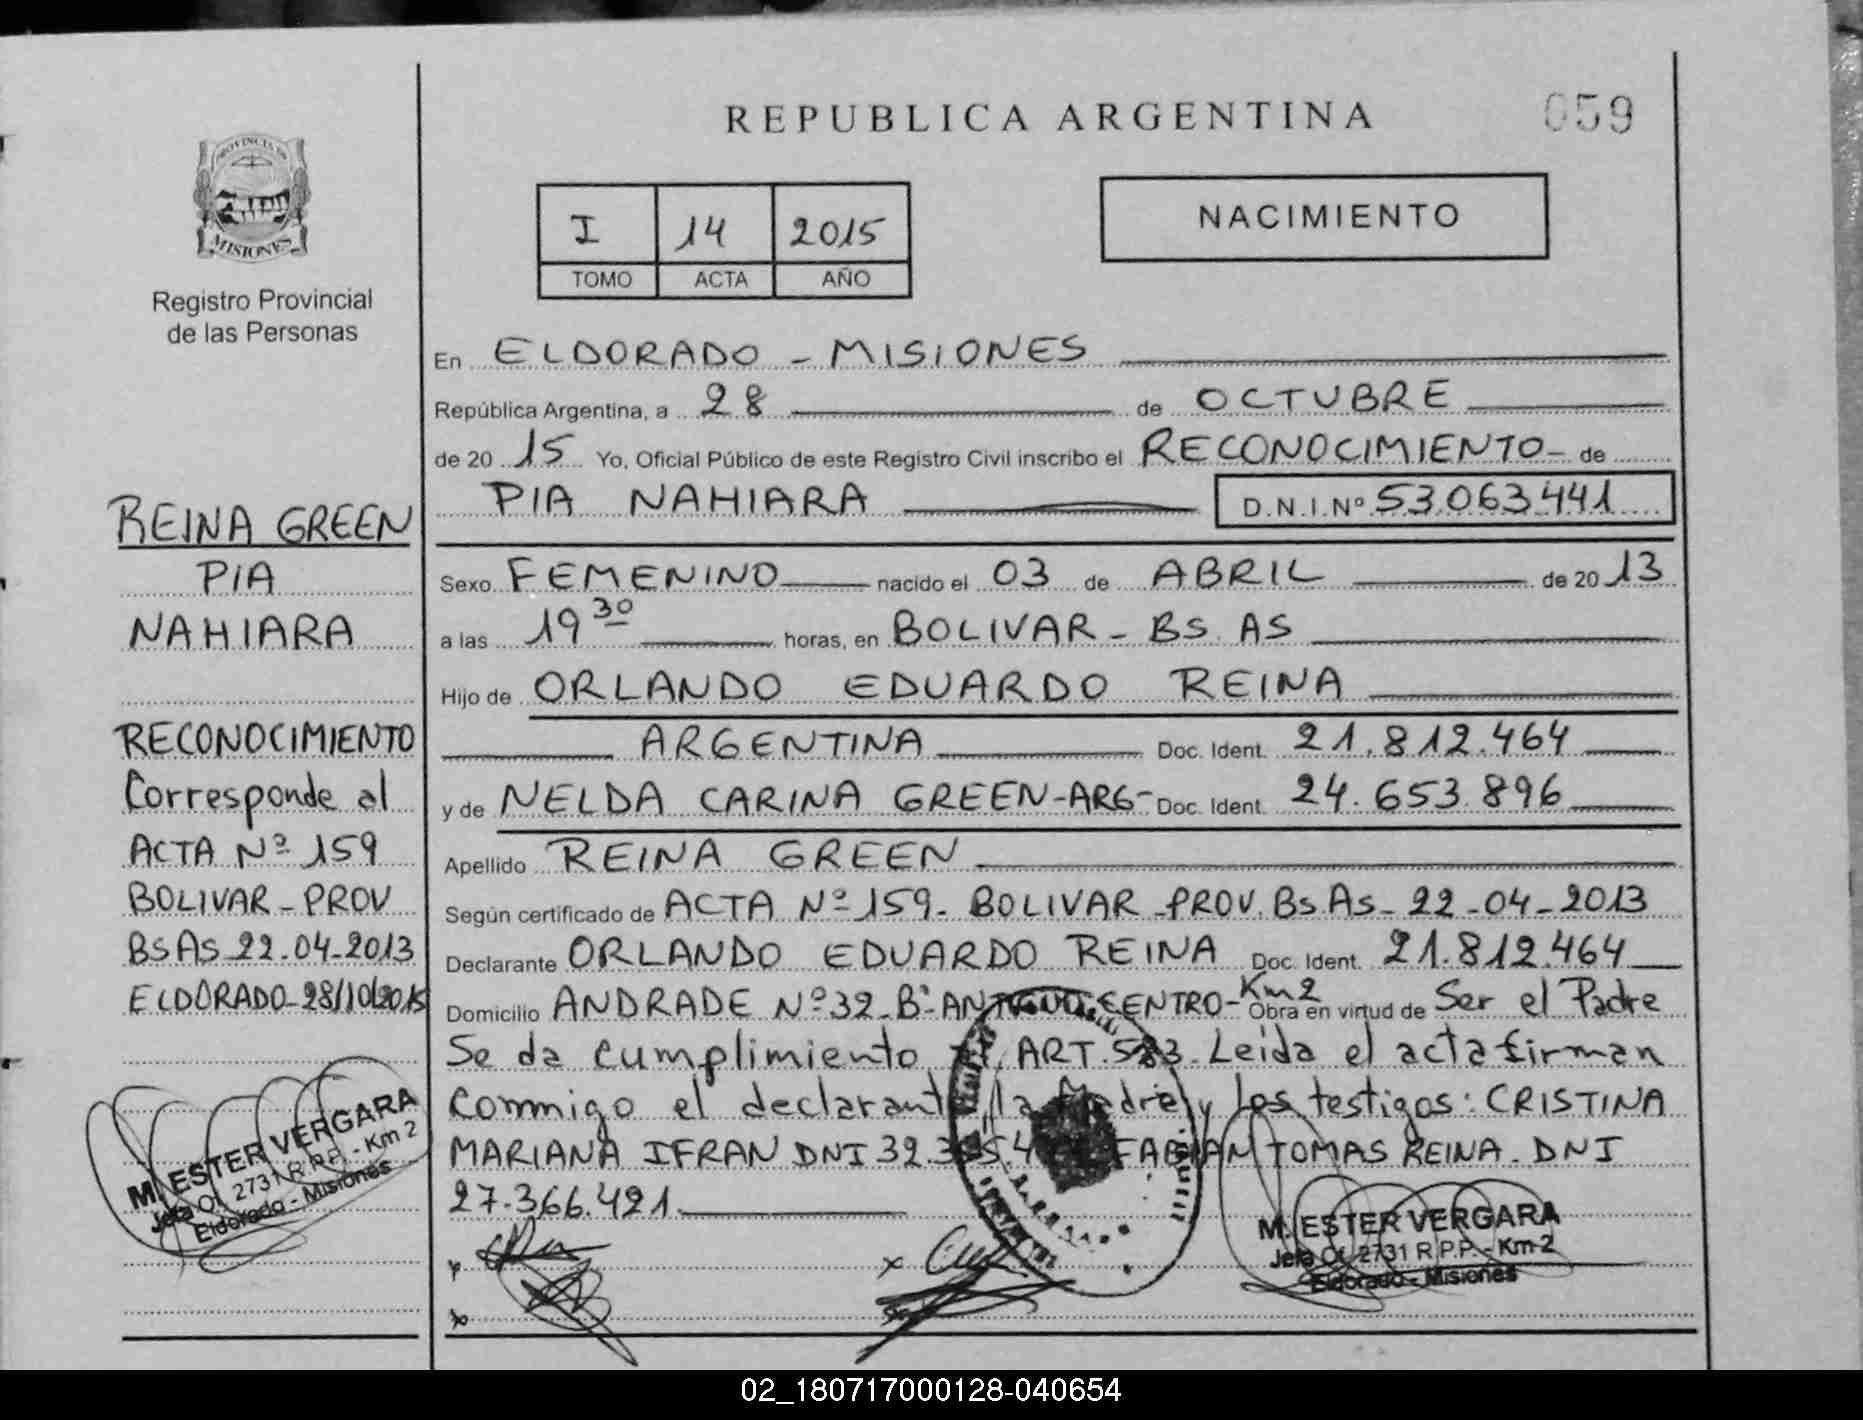 REPUBLICA ARGENTINA
059
PROVINCIA DE
MISIONES
Registro Provincial
de las Personas
I 14 2015
TOMO ACTA AÑO
NACIMIENTO
En ELDORADO - MISIONES
República Argentina, a 28 de OCTUBRE
de 20 15 Yo, Oficial Público de este Registro Civil inscribo el RECONOCIMIENTO - de
PIA NAHIARA D.N.I.Nº 53.063.441
Sexo FEMENINO nacido el 03 de ABRIL de 20 13
a las 19 30 horas, en BOLIVAR - BS. AS
Hijo de ORLANDO EDUARDO REINA
ARGENTINA Doc. Ident. 21.812.464
y de NELDA CARINA GREEN-ARG- Doc. Ident. 24.653.896
Apellido REINA GREEN
Según certificado de ACTA Nº 159- BOLIVAR -PROV. Bs.As- 22-04-2013
Declarante ORLANDO EDUARDO REINA Doc. Ident. 21.812.464
Domicilio ANDRADE Nº 32-Bº- ANTIGUO CENTRO- Km 2 Obra en virtud de Ser el Padre
Se da cumplimiento ART. 583- Leida el acta firman
conmigo el declarante la Madre y los testigos: CRISTINA
MARIANA IFRAN DNI FABIAN TOMAS REINA - DNI
27.366.421
REINA GREEN
PIA
NAHIARA
RECONOCIMIENTO
Corresponde al
ACTA Nº 159
BOLIVAR - PROV
BS AS 22-04-2013
ELDORADO-28/10/2015
M. ESTER VERGARA
Jefa Of. 2731 R.P.P. - Km 2
Eldorado - Misiones
M. ESTER VERGARA
Jefa Of. 2731 R.P.P. - Km 2
Eldorado - Misiones
02_180717000128-040654